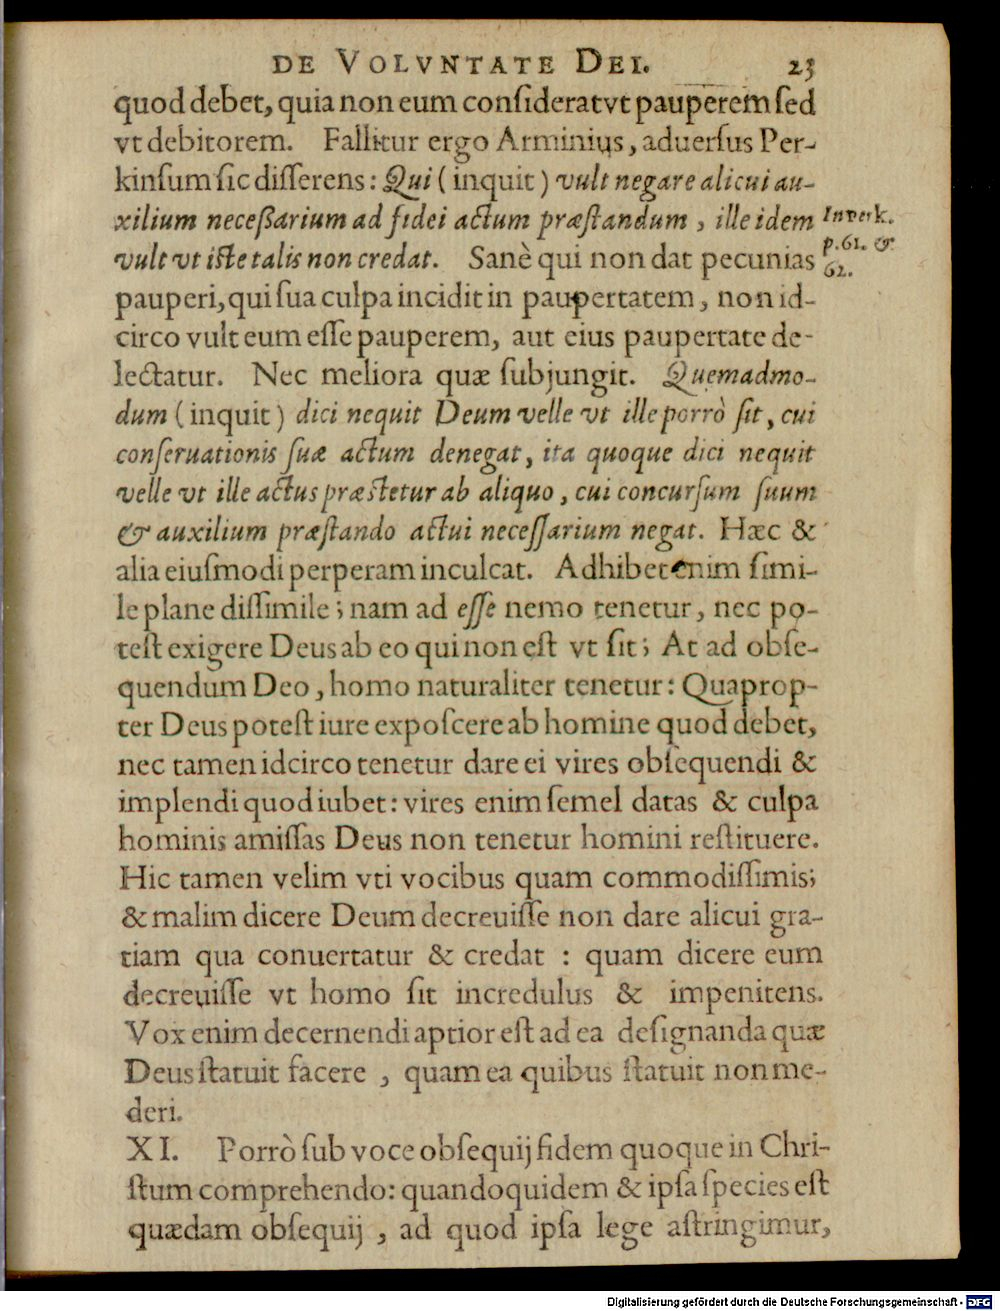 DE VOLVNTATE DEI. 23
quod debet, quia non eum consideratvt pauperem sed
vt debitorem. Fallitur ergo Arminius, aduersus Per-
kinsum sic differens: Qui (inquit) vult negare alicui au-
xilium necessarium ad fidei actum præstandum, ille idem
vult vt iste talis non credat. Sanè qui non dat pecunias
In Perk.
p. 61. &
62.
pauperi, qui sua culpa incidit in paupertatem, non id-
circo vult eum esse pauperem, aut eius paupertate de-
lectatur. Nec meliora quæ subjungit. Quemadmo-
dum (inquit) dici nequit Deum velle vt ille porrò sit, cui
conseruationis suæ actum denegat, ita quoque dici nequit
velle vt ille actus præstetur ab aliquo, cui concursum suum
& auxilium præstando actui necessarium negat. Hæc &
alia eiusmodi perperam inculcat. Adhibet enim simi-
le plane dissimile; nam ad esse nemo tenetur, nec po-
test exigere Deus ab eo qui non est vt sit; At ad obse-
quendum Deo, homo naturaliter tenetur: Quaprop-
ter Deus potest iure exposcere ab homine quod debet,
nec tamen idcirco tenetur dare ei vires obsequendi &
implendi quod iubet: vires enim semel datas & culpa
hominis amissas Deus non tenetur homini restituere.
Hic tamen velim vti vocibus quam commodissimis;
& malim dicere Deum decreuisse non dare alicui gra-
tiam qua conuertatur & credat : quam dicere eum
decreuisse vt homo sit incredulus & impenitens.
Vox enim decernendi aptior est ad ea designanda quæ
Deus statuit facere, quam ea quibus statuit non me-
deri.
XI. Porrò sub voce obsequij fidem quoque in Chri-
stum comprehendo: quandoquidem & ipsa species est
quædam obsequij, ad quod ipsa lege astringimur,
Digitalisierung gefördert durch die Deutsche Forschungsgemeinschaft - DFG